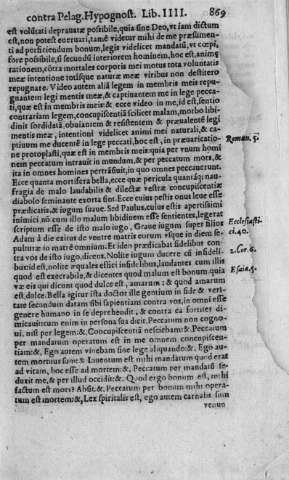 contra Pelag. Hypognost. Lib. IIII. 869
est voluntati deprauatæ possibile, quia sine Deo, vt iam dictum
est, non potest exerceri, tamē videtur mihi de me præsumenti
ad perficiendum bonum, legis videlicet mandati, vt cœpi,
fore possibile, si secundū interiorem hominem, hoc est, animę
rationem, cōtra mortales corporis mei motus tota voluntatis
meæ intentione totisque naturæ meæ viribus non destitero
repugnare. Video autem aliā legem in membris meis repugnantem
legi mentis meæ, & captiuantem me in lege peccati,
quæ est in membris meis: & ecce video in me, id est, sentio
contrariam legem, concupiscentiā scilicet malam, morbo libidinis
sordidatā, obuiantem & resistentem & præualentē legi
mentis meæ, intentioni videlicet animi mei naturali, & captiuum
me ducentē in lege peccati, hoc est, in præuaricatione
protoplasti, quæ est in membris meis quia per vnum hominem
peccatum intrauit in mundum, & per peccatum mors, & Roman. 5.
ita in omnes homines pertrāsiuit, in quo omnes peccauerunt.
Ecce quanta mortifera bella, ecce quæ pericula quæq́; naufragia
de malo laudabilis & dilectæ vestræ concupiscentiæ
diabolo seminante exorta sint. Ecce cuius pestis onus leue esse
prædicatis, & iugum suaue. Sed Paulus, cuius estis apertissimi
inimici non isto malum libidinem esse sentientes, legerat
scriptum esse de isto malo iugo, Graue iugum super filios Ecclesiasti
Adam à die exitus de ventre matris eorum vsque in diem sepulturæ ci. 40.
in matrē omnium. Et ideo prædicabat fidelibus contra
vos de isto iugo, dicens, Nolite iugum ducere cū infidelibus, 2. Cor. 6.
id est, nolite æquales effici infidelibus, laudantes cum illis
quod est execrabile, & dicentes quod malum est bonum quia
væ eis qui dicunt quod dulce est, amarum: & quod amarum Esaiæ 5.
est, dolce. Bella igitur ista doctor ille gentium in fide & veritate
secundum datam sibi sapientiam contra vos, in omni esse
genere humano in se deprehendit, & contra ea fortiter dimicauit
cum enim in persona sua dicit, Peccatum non cognoui,
nisi per legem: &, Concupiscentiā nesciebam: &, Peccatum
per mandatum operatum est in me omnem concupiscentiam:
&, Ego autem viuebam sine lege aliquando: &, Ego autem
mortuus sum: & Inuentum est mihi mandatum quod erat
ad vitam, hoc esse ad mortem: &, Peccatum per mandatū seduxit
me, & per illud occidit: &, Quod ergo bonum est, mihi
factum est mors? Absit. &, Peccatum per bonum mihi operatum
est mortem: &, Lex spiritalis est, ego autem carnalis sum
venun